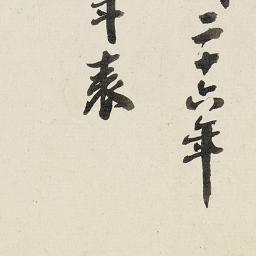 二十六年
年表